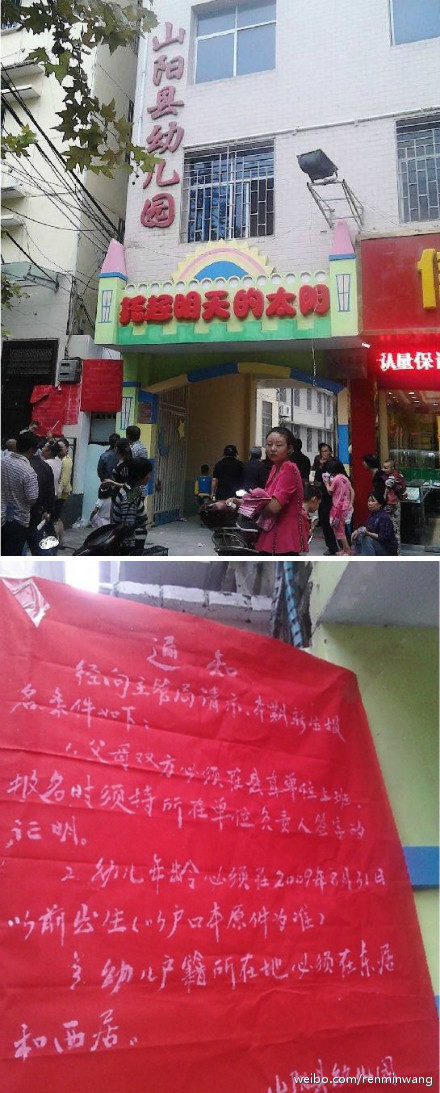 山阳县幼儿园
托起明天的太阳
认量保
通知
经向主管局请示、本期新生报
名条件如下：
1、父母双方必须在县直单位上班、
报名时须持所在单位负责人签字的
证明。
2、幼儿年龄必须在2009年8月31日
以前出生（以户口本原件为准）
3、幼儿户籍所在地必须在东居
和西居。
山阳县幼儿园
weibo.com/renminwang